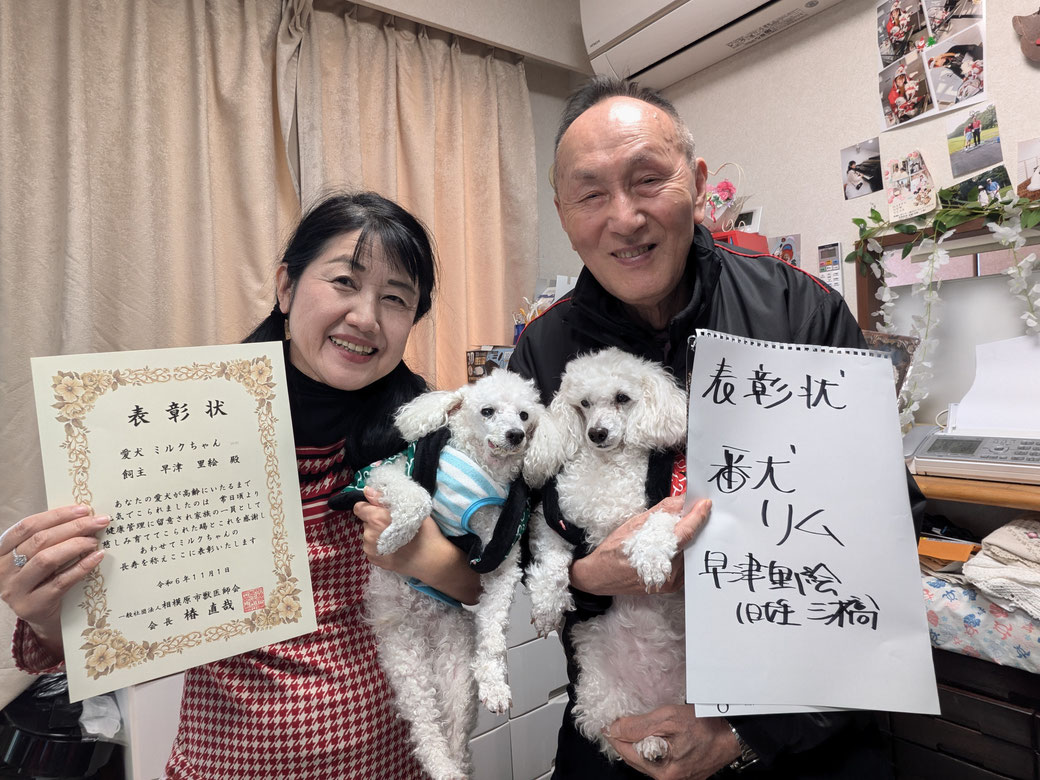 表彰状
愛犬 ミルクちゃん
飼主 早津 里絵 殿
あなたの愛犬が高齢にいたるまで
気でこられましたのは 常日頃より
健康管理に留意され家族の一員として
慈しみ育ててこられた賜とこれを感謝し
あわせてミルクちゃんの
長寿を称えここに表彰いたします
令和6年11月1日
一般社団法人相模原市獣医師会
会長 椿 直哉
表彰状
番犬
リム
早津里絵
(旧姓 三橋)